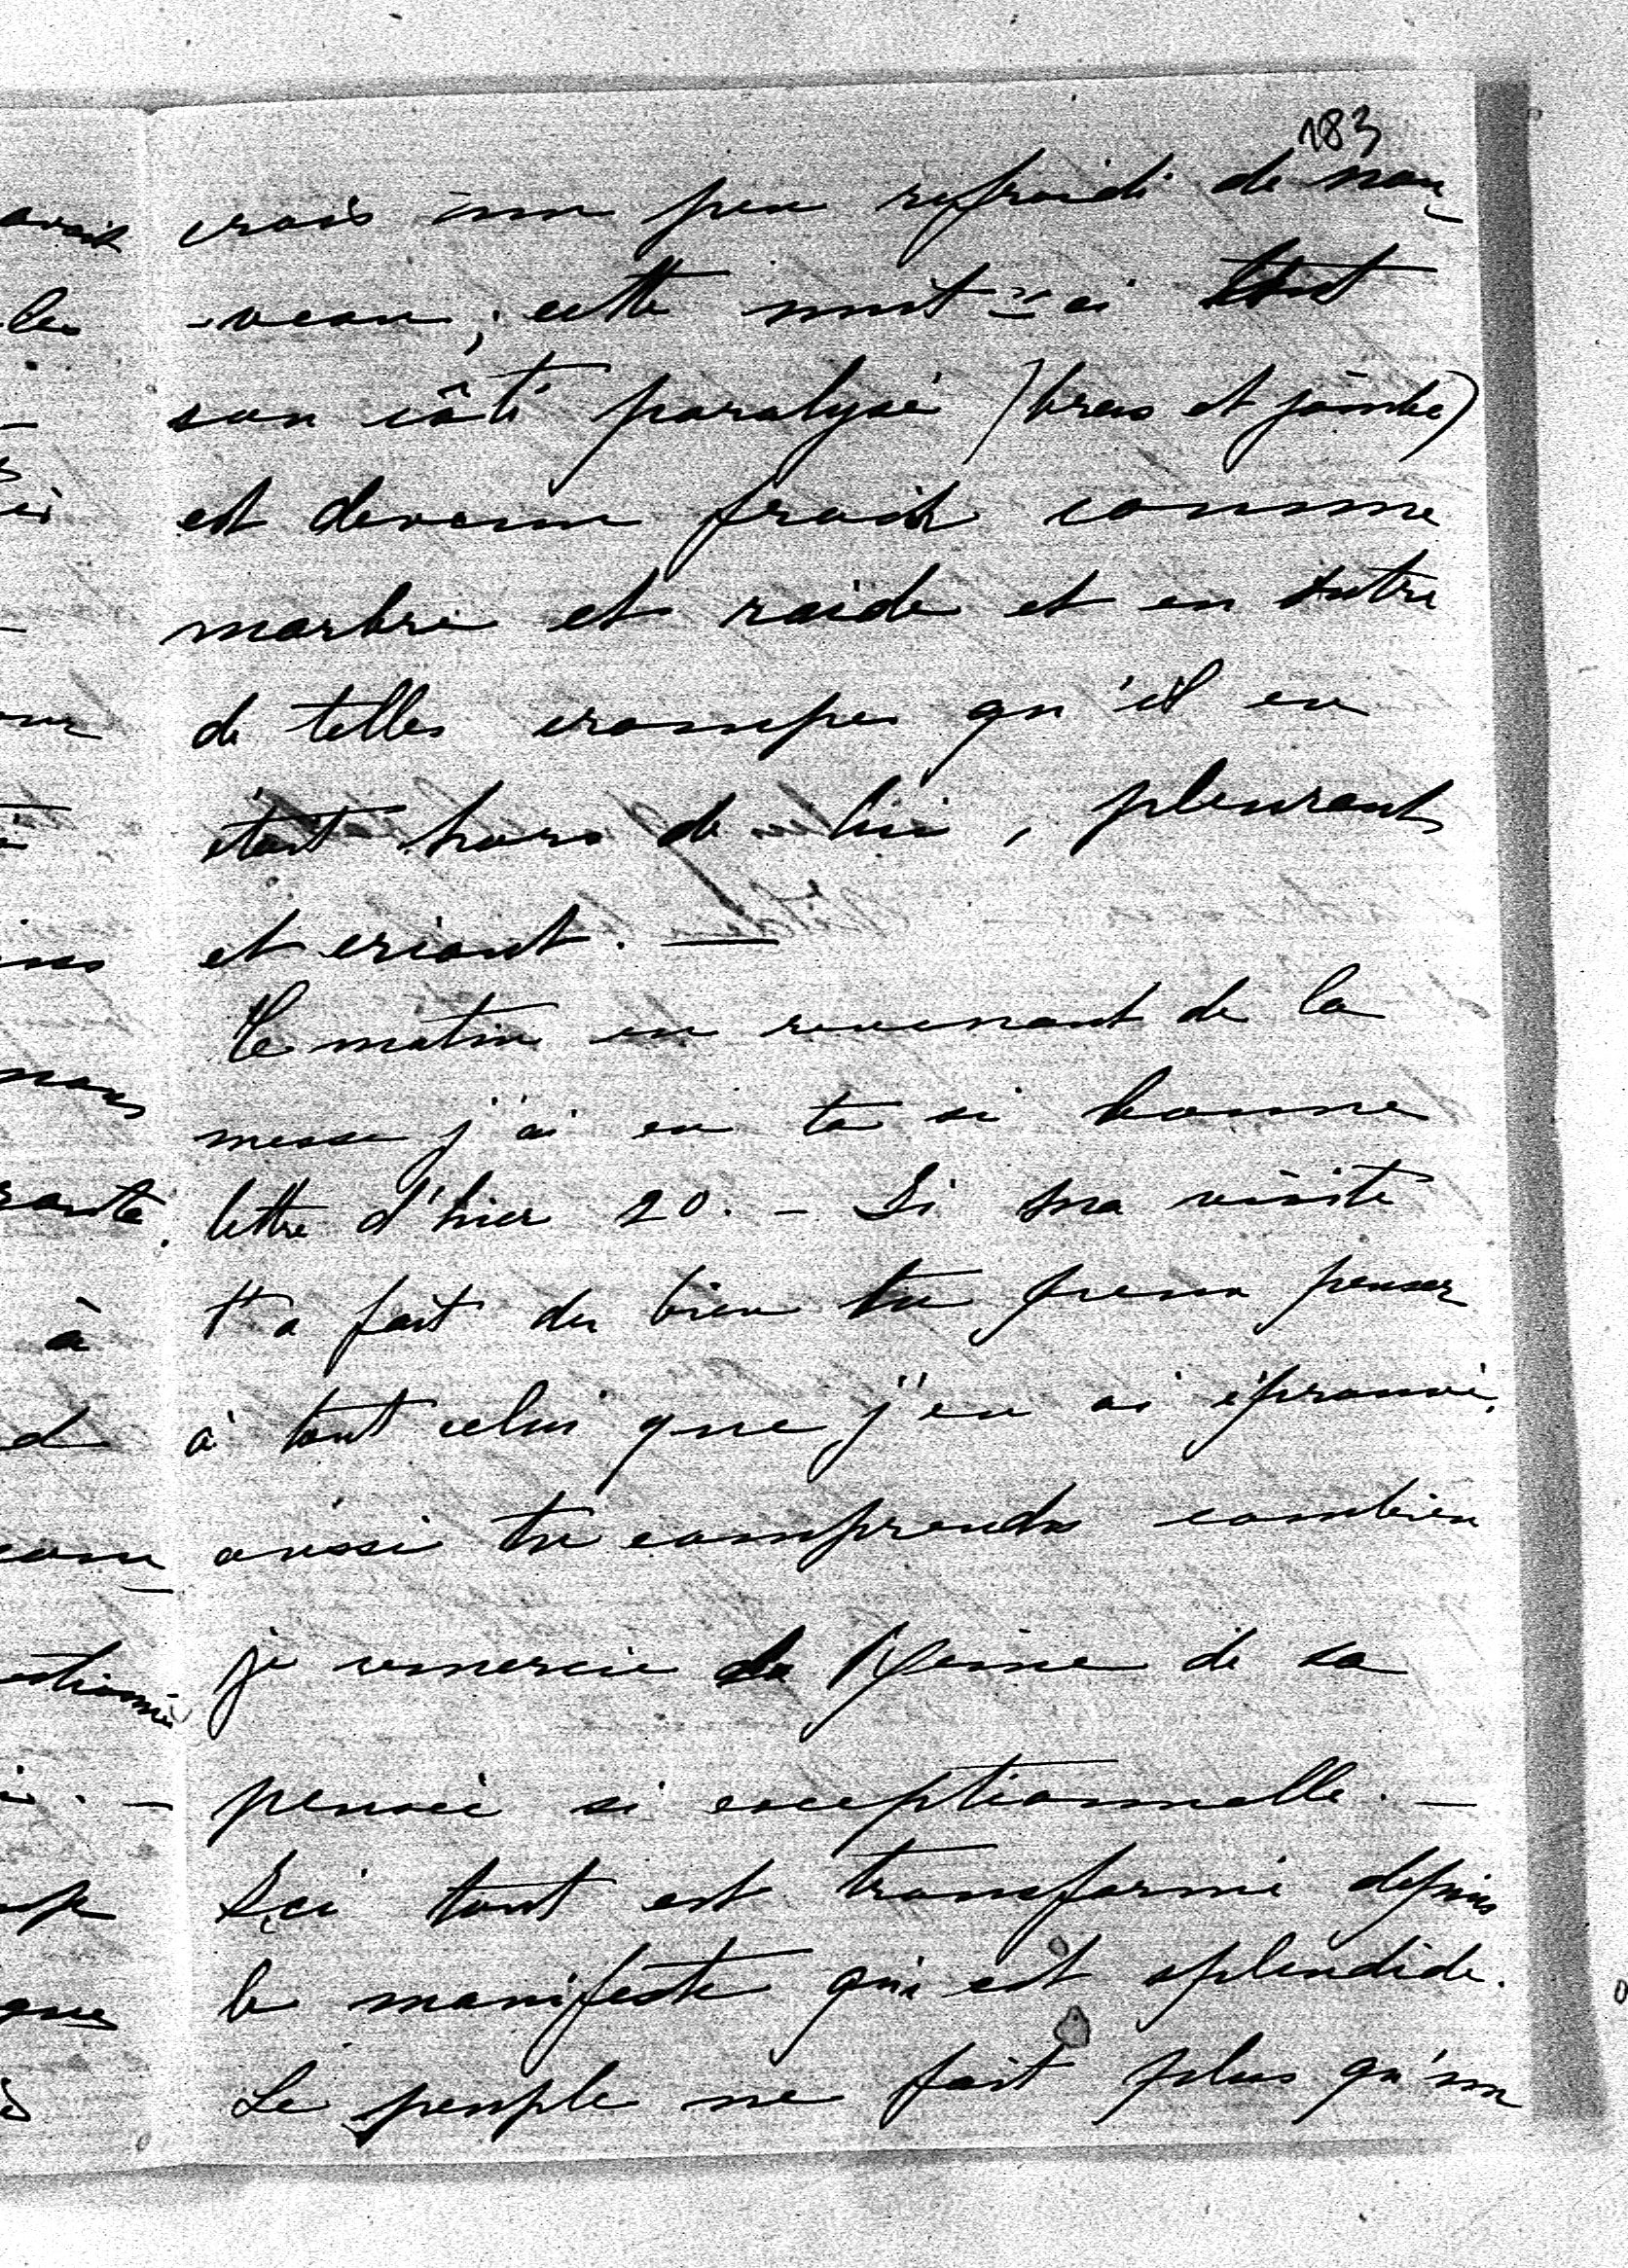 183
crois un peu refroidi de nou
-veau ; cette nuit-ci tout
son côté paralysé (bras et jambe)
est devenu froid comme
marbre et raide et en outre
de telles crampes qu'il en
était hors de lui, pleurant
et criant. —
Ce matin en revenant de la
messe j'ai eu ta si bonne
lettre d'hier 20. - Si ma visite
t'a fait du bien tu peux penser
à tout celui que j'en ai éprouvé,
aussi tu comprends combien
je remercie la Reine de sa
pensée si exceptionnelle. —
Ici tout est transformé depuis
le manifeste qui est splendide.
Le peuple ne fait plus qu'un